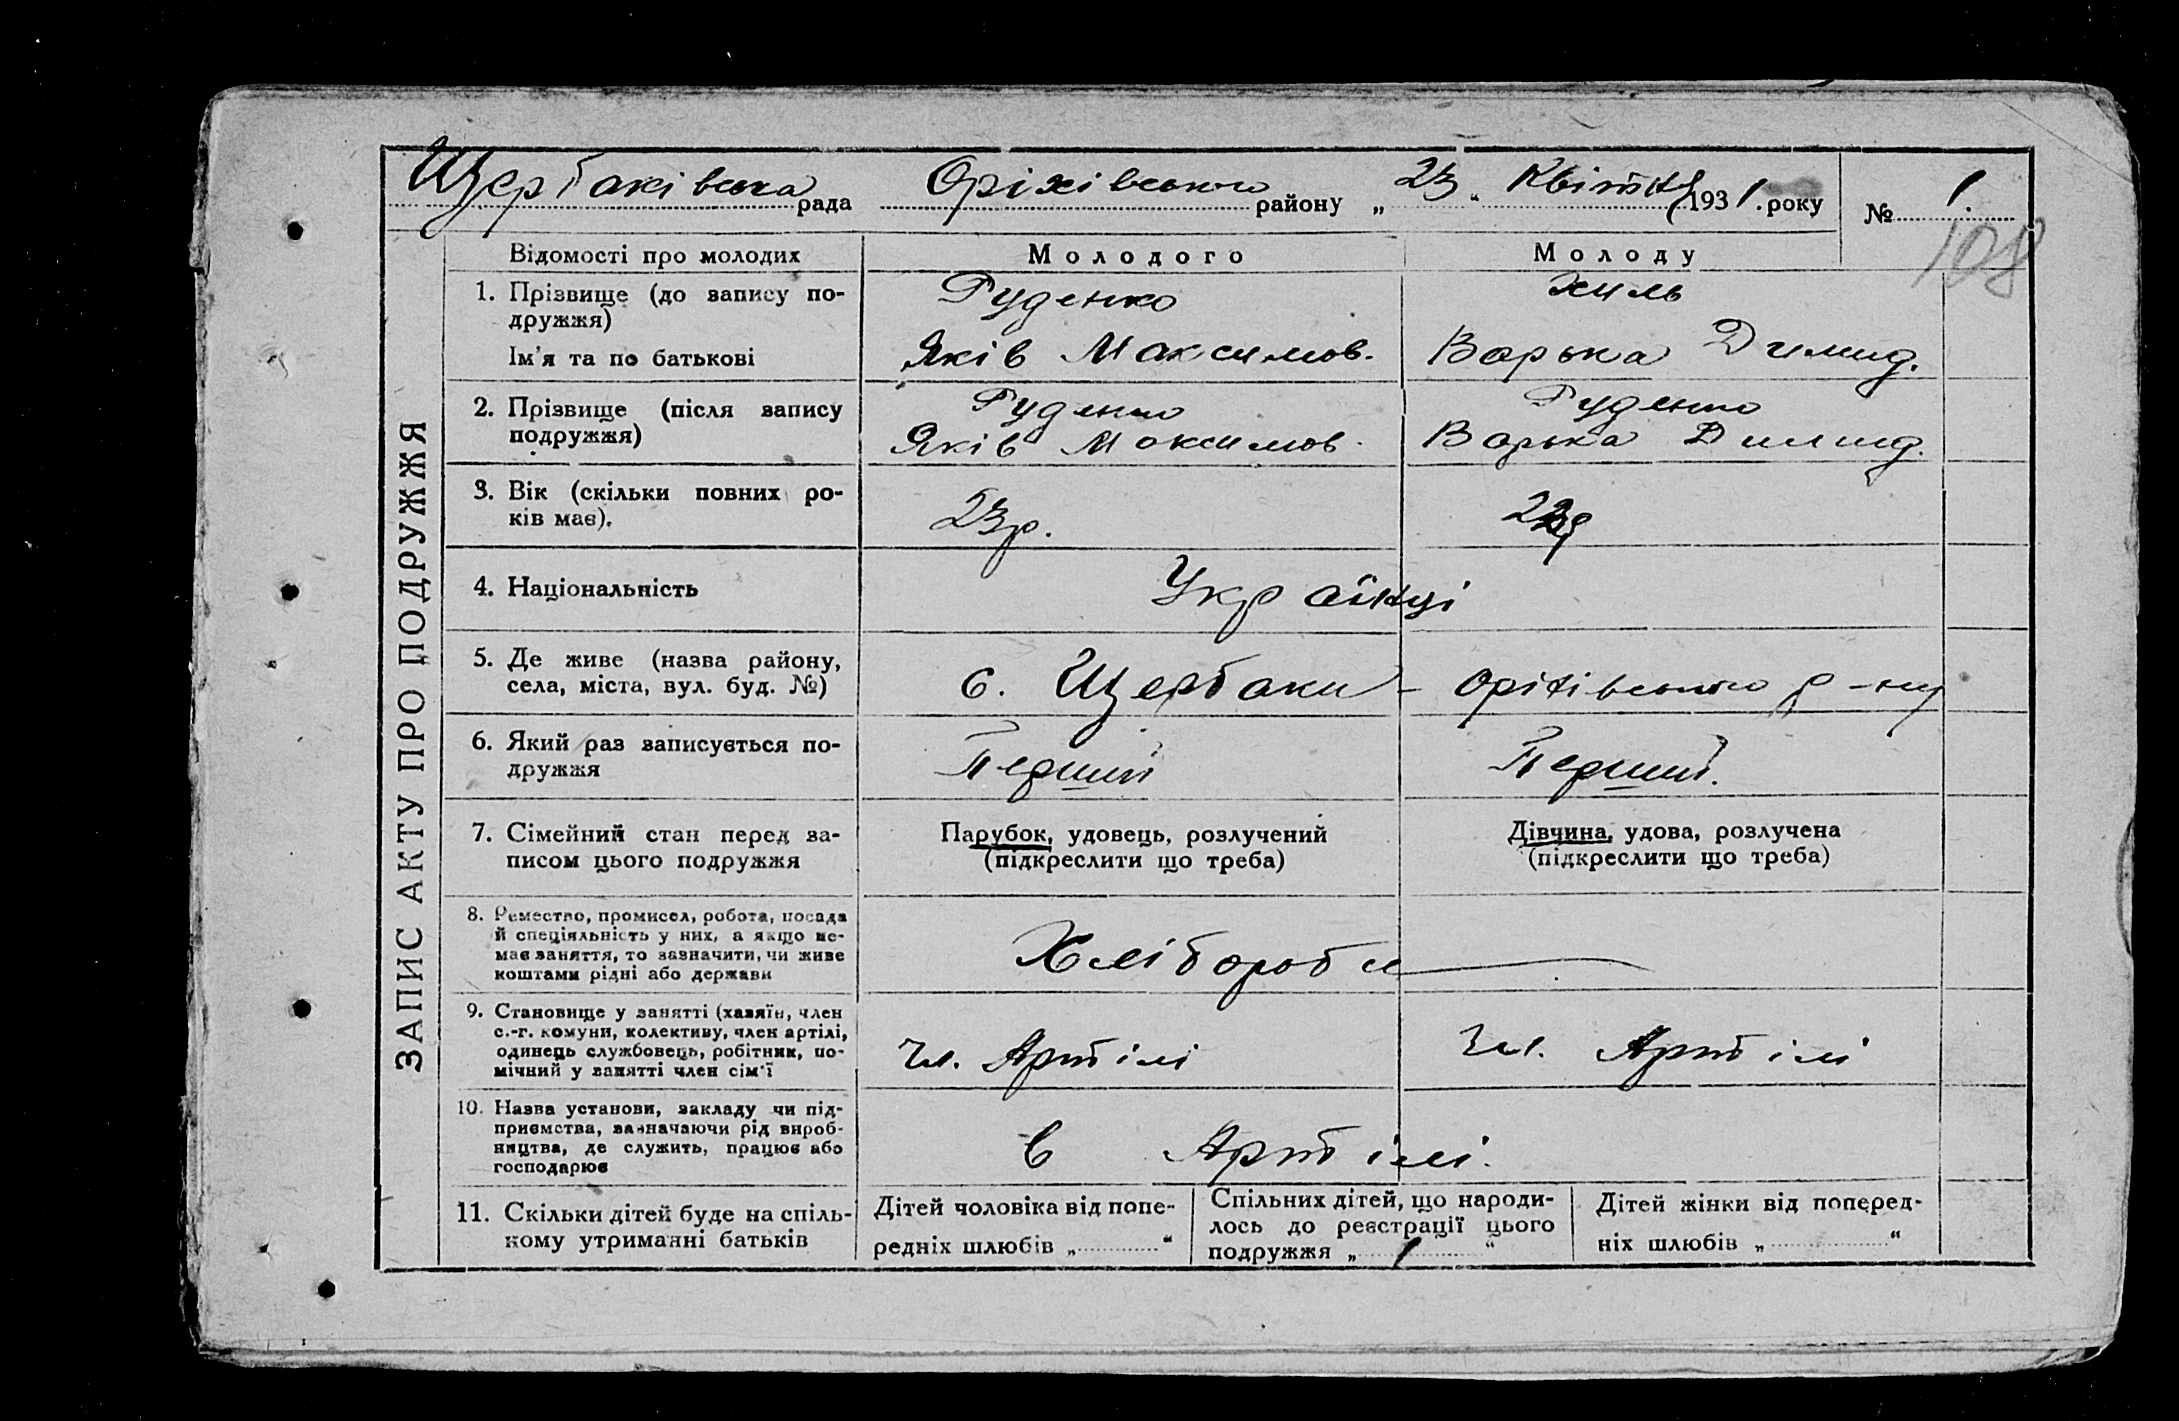 Щербаківська рада Оріхівського району „ 23 " Квітня 1931. року № 1.
108
ЗАПИС АКТУ ПРО ПОДРУЖЖЯ
Відомості про молодих Молодого Молоду
1. Прізвище (до запису по-
дружжя)
Руденко
Ім'я та по батькові Яків Максимов. Варька Димид.
2. Прізвище (після запису
подружжя)
Руденко Руденко
Яків Максимов. Варька Димид.
3. Вік (скільки повних ро-
ків має).
23р.
4. Національність Українці
5. Де живе (назва району,
села, міста, вул. буд. №)
с. Щербаки - Оріхівського р-ну
6. Який раз записується по-
дружжя
Перший Перший.
7. Сімейний стан перед за-
писом цього подружжя
Парубок, удовець, розлучений
(підкреслити що треба)
Дівчина, удова, розлучена
(підкреслити що треба)
8. Ремество, промисел, робота, посада
й спеціяльність у них, а якщо не-
має заняття, то зазначити, чи живе
коштами рідні або держави
Хлібороби
9. Становище у занятті (хазяїн, член
с.-г. комуни, колективу, член артілі,
одинець службовець, робітник, по-
мічний у занятті член сім'ї
Чл. Артілі Чл. Артілі
10. Назва установи, закладу чи під-
приємства, зазначаючи рід вироб-
ництва, де служить, працює або
господарює
в Артілі.
11. Скільки дітей буде на спіль-
кому утриманні батьків
Дітей чоловіка від попе-
редніх шлюбів „ "
Спільних дітей, що народи-
лось до реєстрації цього
подружжя „ 1 "
Дітей жінки від поперед-
ніх шлюбів „ "